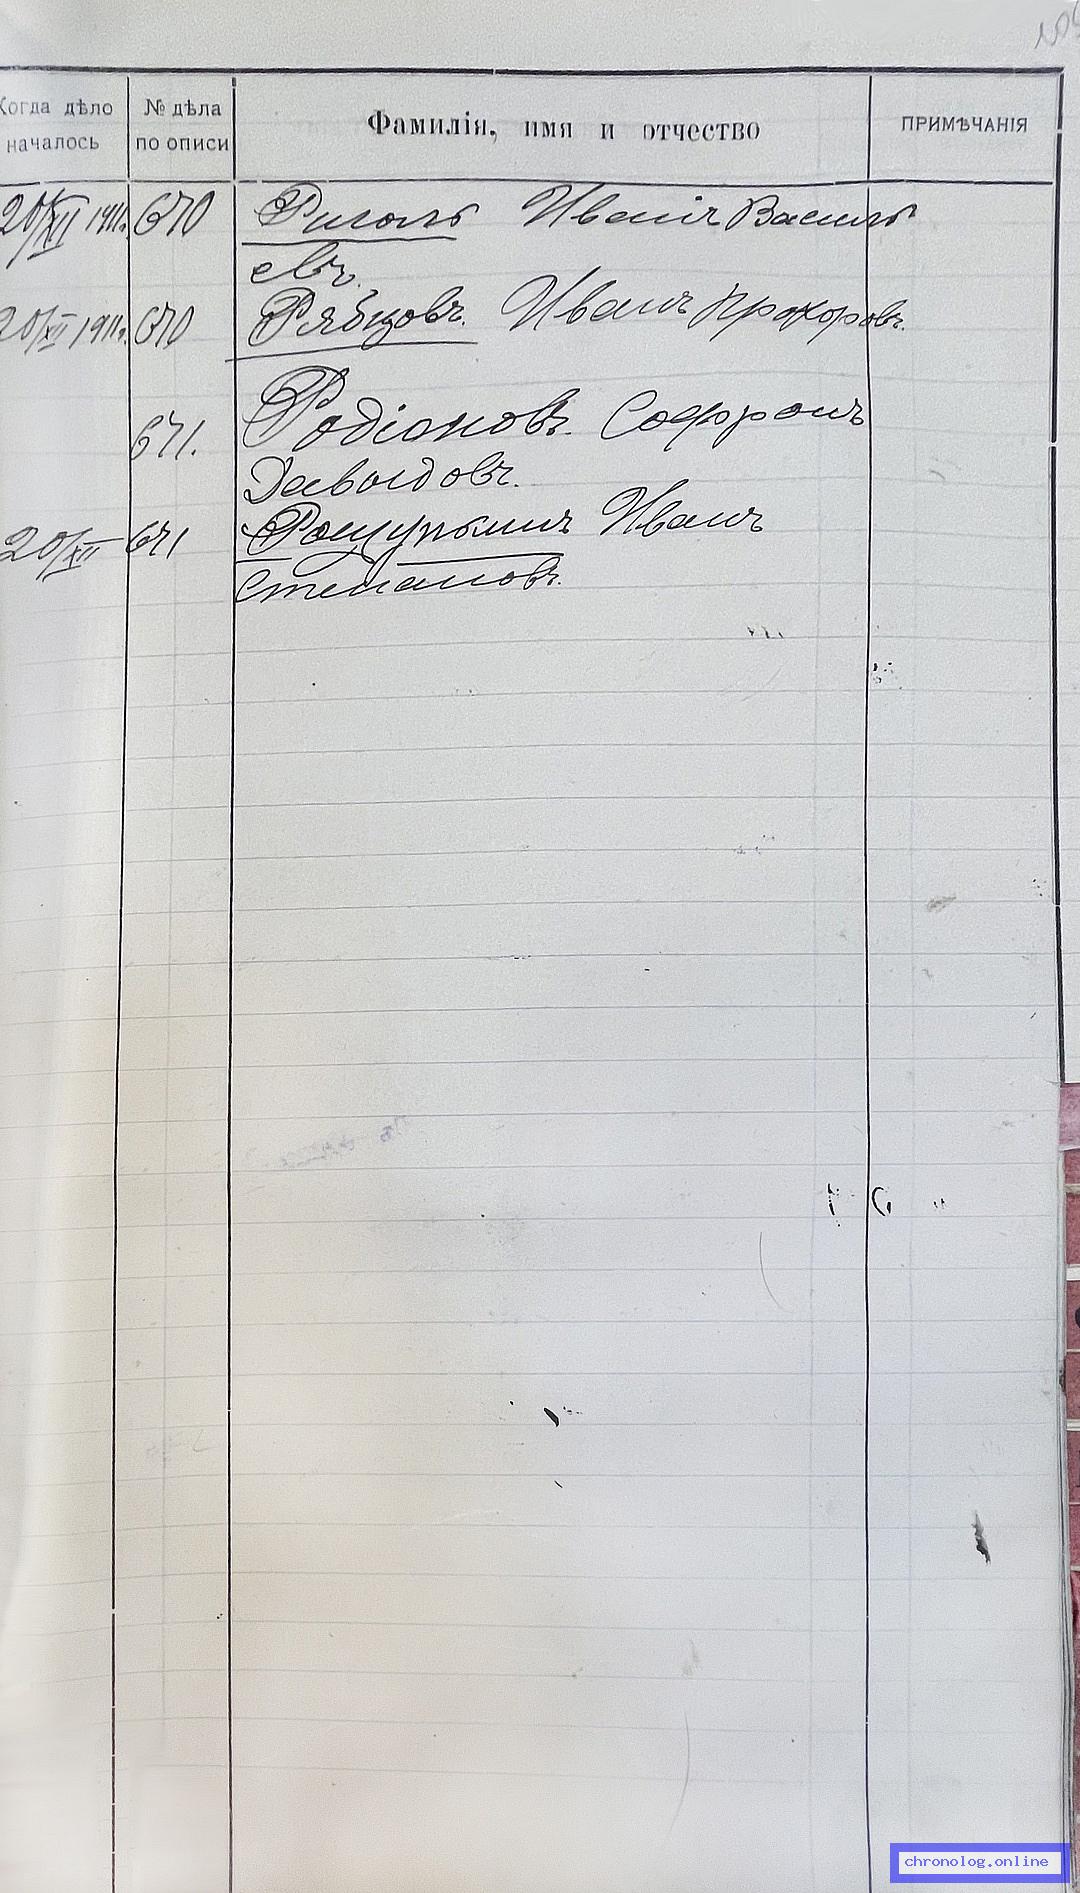 Когда дѣло началось № дѣла по описи Фамилія, имя и отчество ПРИМѢЧАНІЯ
20/XII 1911г. 670 Иванъ Василь
евъ.
20/XII 1911г. 670 Рябцовъ. Иванъ Прохоровъ.
671. Родіоновъ. Софронъ
Давыдовъ.
20/XII 671 Иванъ
Степановъ.
chronolog.online